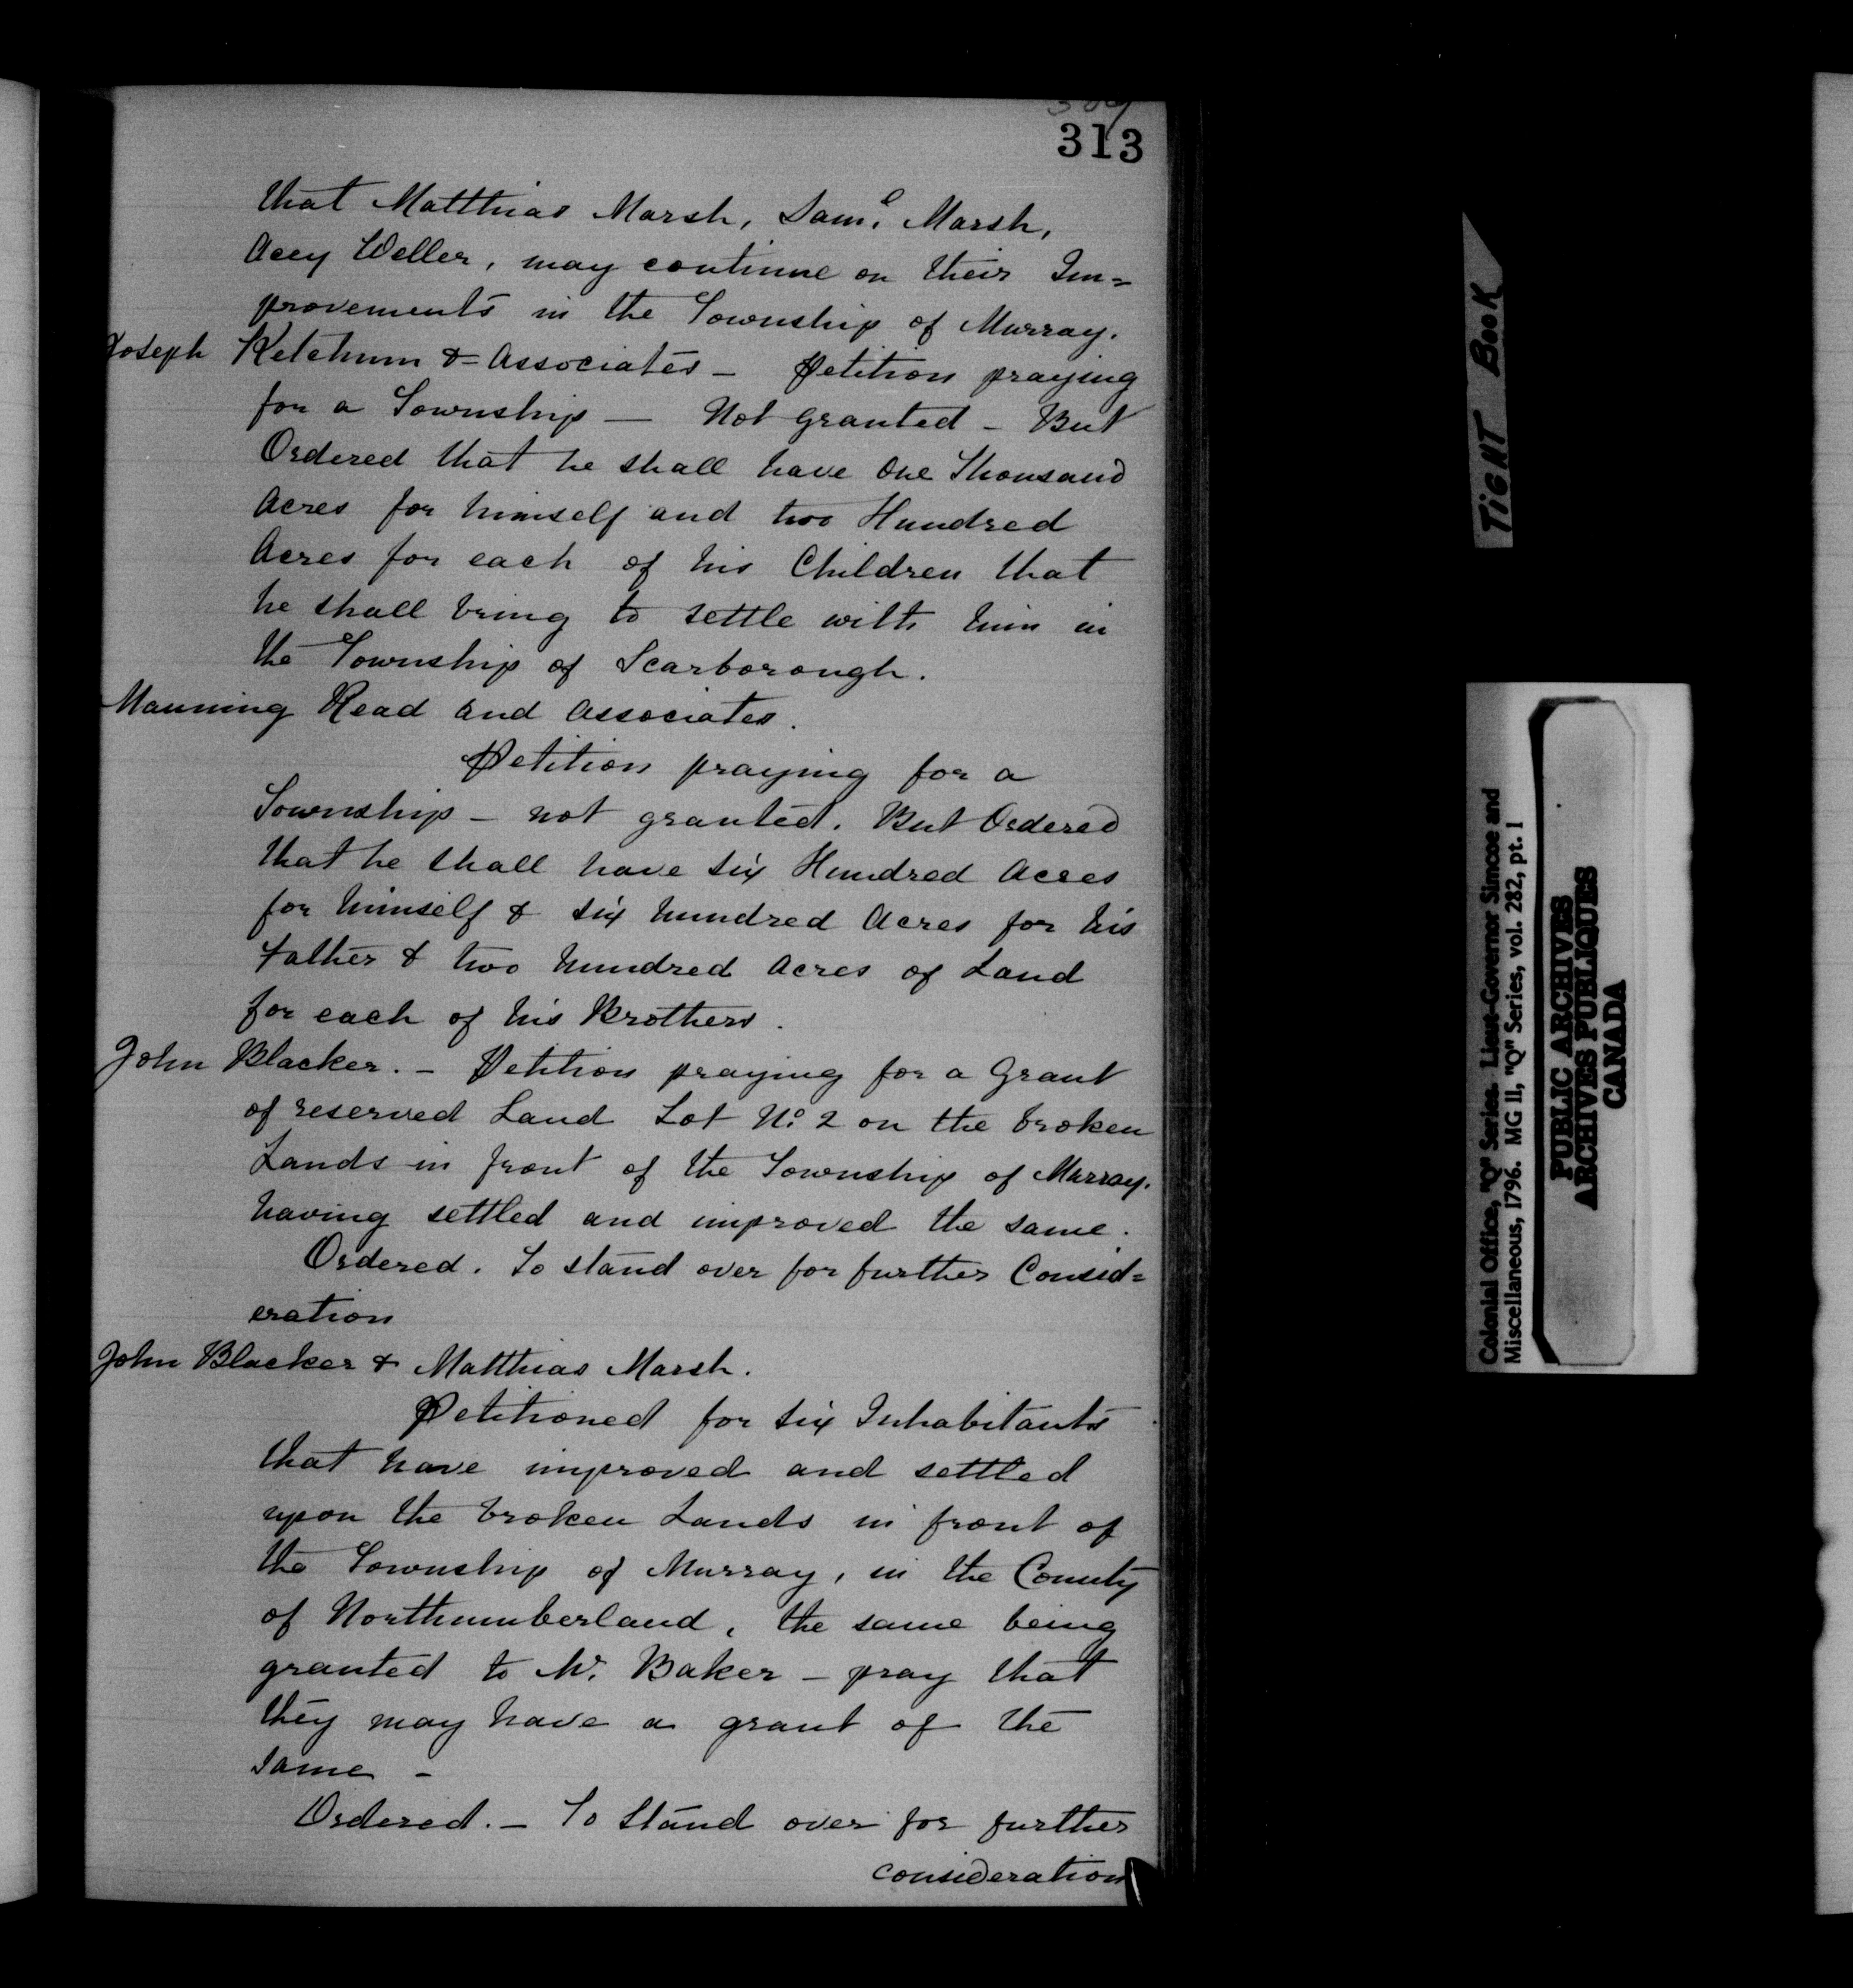 313
that Matthias Marsh, Saml. Marsh,
Acey Weller, may continue on their Im=
provements in the Township of Murray.
Joseph Ketchum & Associates - Petition praying
for a Township — Not granted - But
Ordered that he shall have One Thousand
Acres for himself and two Hundred
Acres for each of his Children that
he shall bring to settle with him in
the Township of Scarborough.
Manning Read and Associates.
Petition praying for a
Township - not granted. But Ordered
that he shall have six Hundred Acres
for himself & six hundred Acres for his
father & two hundred Acres of Land
for each of his Brothers.
John Blacker. - Petition praying for a Grant
of reserved Land Lot No. 2 on the broken
Lands in front of the Township of Murray.
having settled and improved the same.
Ordered. To stand over for further Consid=
eration
John Blacker & Matthias Marsh.
Petitioned for six Inhabitants
that have improved and settled
upon the broken Lands in front of
the Township of Murray, in the County
of Northumberland, the same being
granted to Mr. Baker - pray that
they may have a grant of the
same -
Ordered. - To Stand over for further
consideration
TIGHT BOOK
Colonial Office, "Q" Series. Lieut-Governor Simcoe and
Miscellaneous, 1796. MG 11, "Q" Series, vol. 282, pt. 1
PUBLIC ARCHIVES
ARCHIVES PUBLIQUES
CANADA